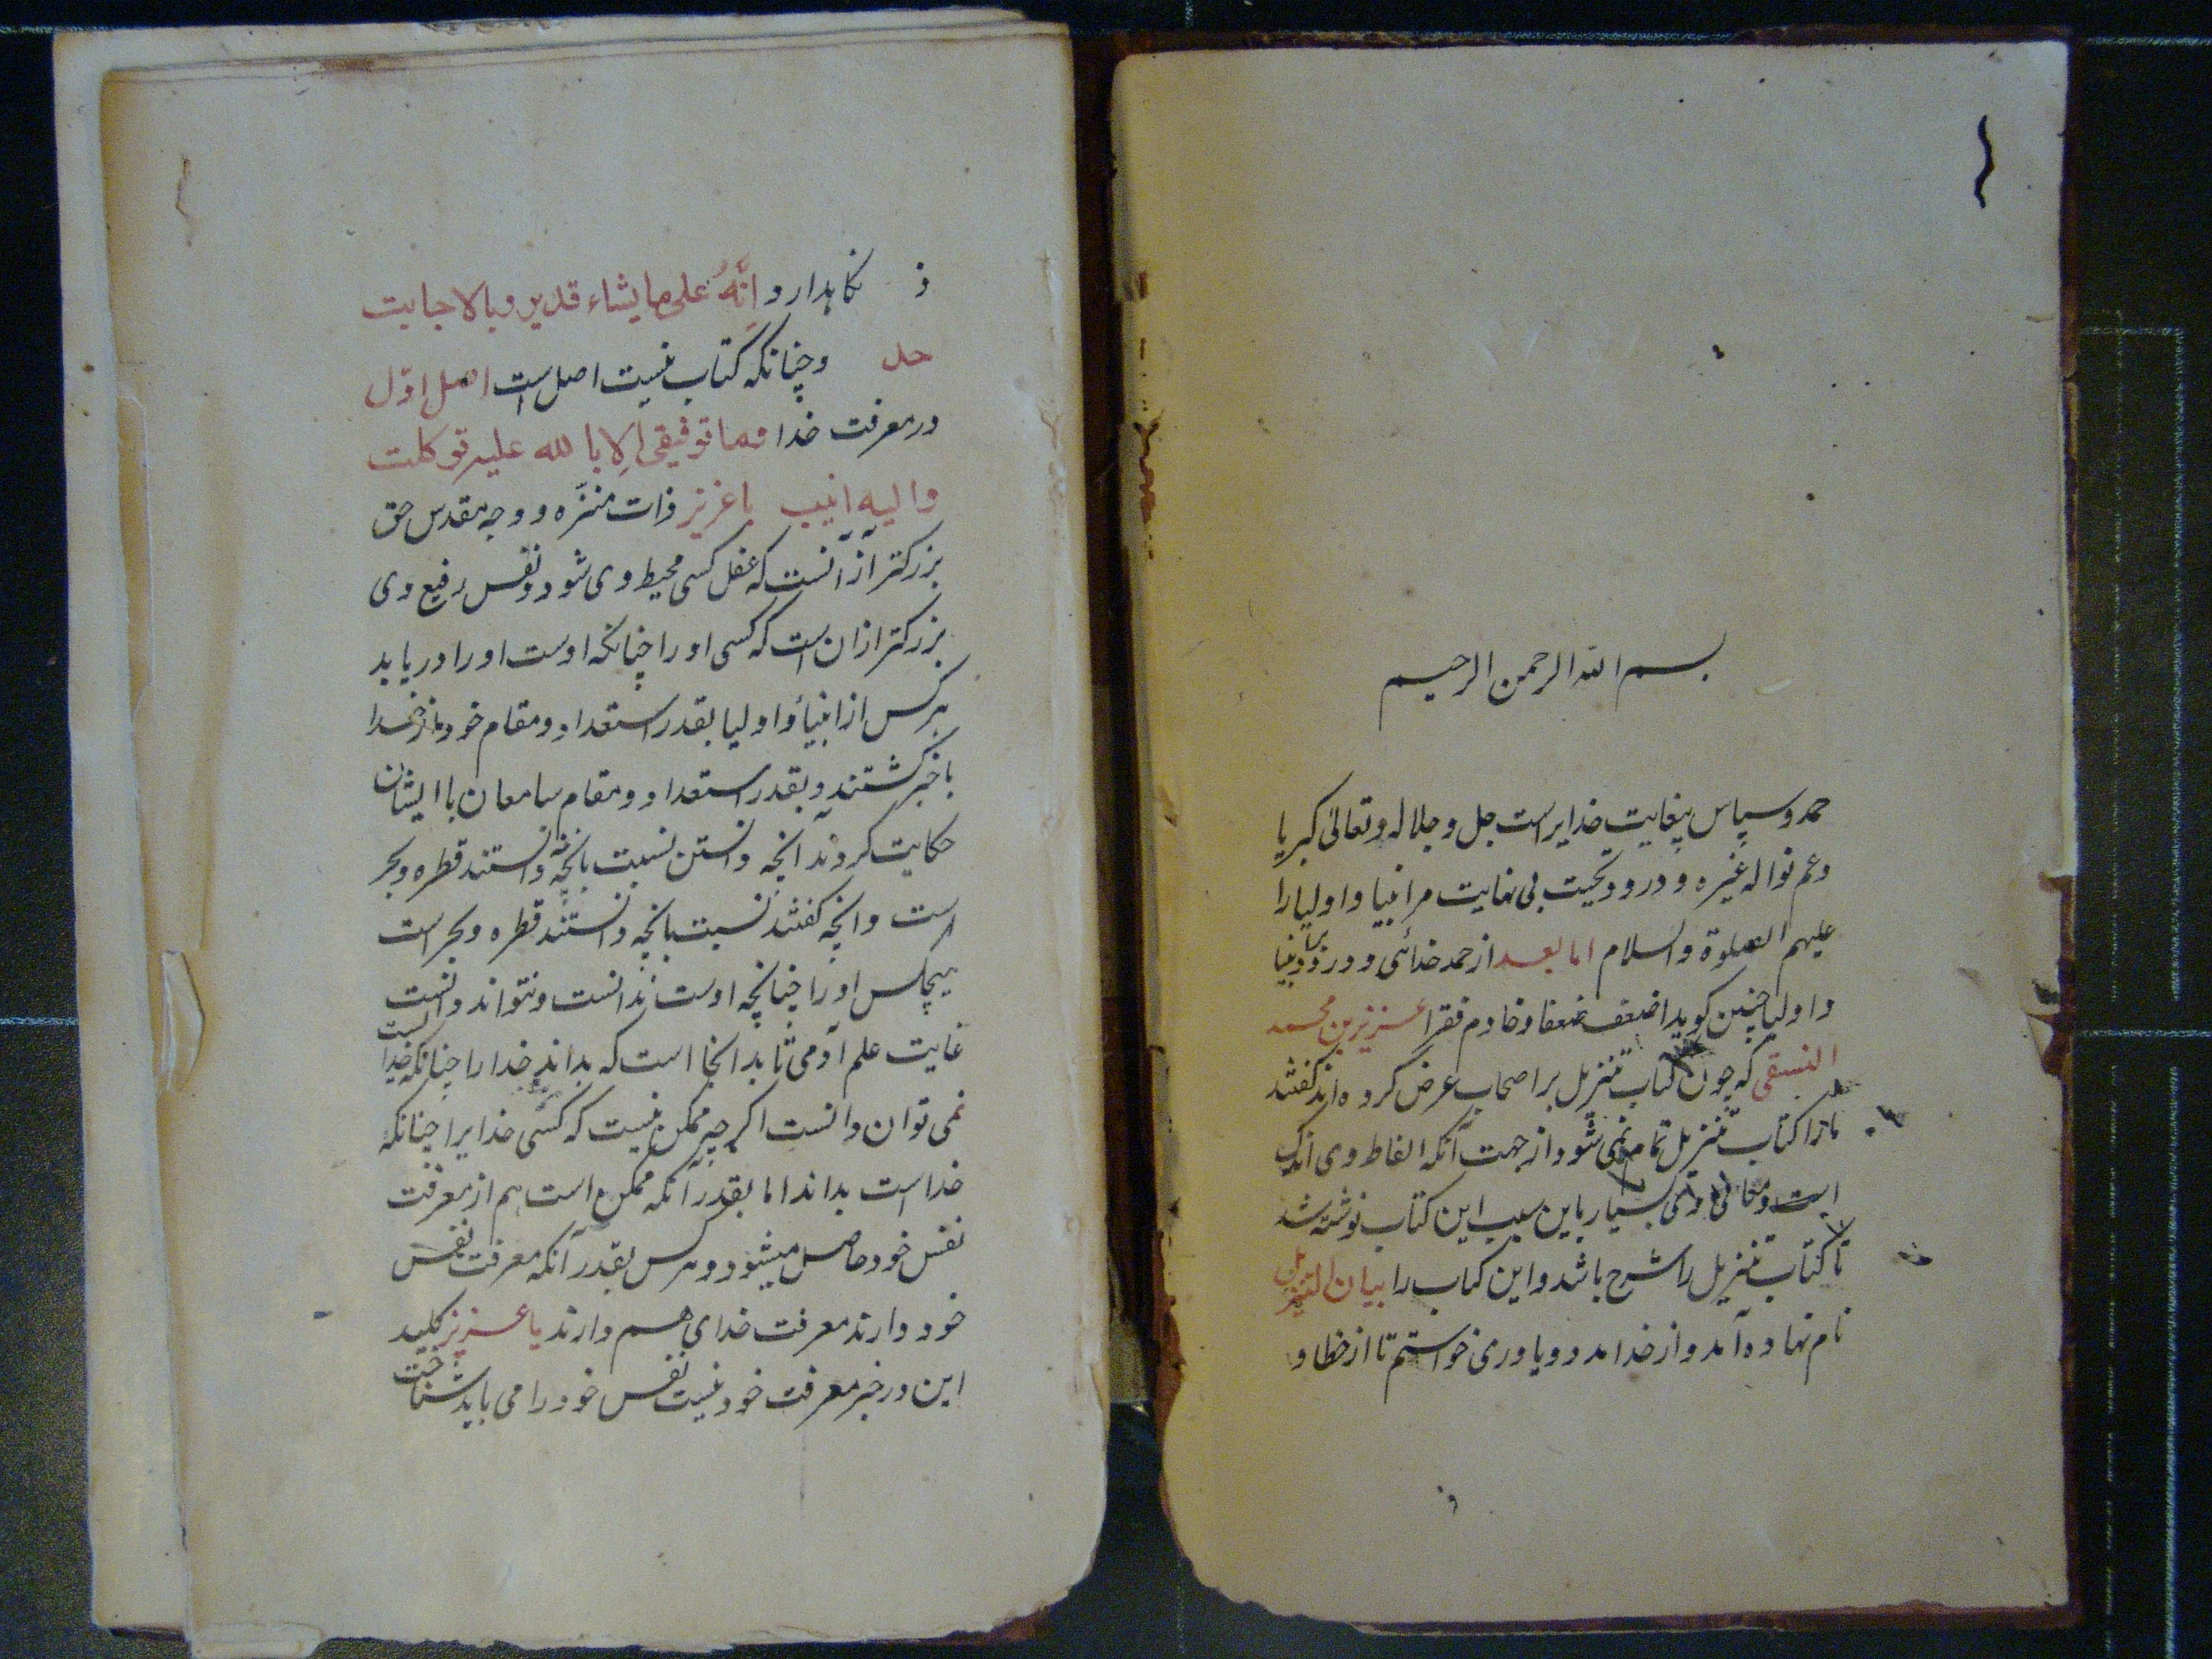 بسم الله الرحمن الرحیم
حمد وسپاس بیغایت خدایراست جل وجلاله وتعالی کبریا
وعم نواله غیره ودرود وتحیت بی نهایت مر انبیا واولیا را
علیهم الصلوة والسلام اما بعد از حمد خدائی ودرود برانبیا
واولیا چنین کوید اضعف ضعفا وخادم فقرا عزیز بن محمد
النسفی که چون کتاب تنزیل بر اصحاب عرض کرده اند کفتند
مارا کتاب تنزیل تمام نمی شود از جهت آنکه الفاظ وی اندک
است ومعانی وی بسیار باین سبب این کتاب نوشته شد
تا کتاب تنزیل را شرح باشد واین کتاب را بیان التنزیل
نام نهاده آمد واز خدا مدد ویاوری خواستم تا از خطا و
نکاهدارد و انه علی ما یشاء قدیر وبالاجابت
وچنانکه کتاب نیست اصل است اصل اول
در معرفت خدا وما توفیقی الا بالله علیه توکلت
والیه انیب یا عزیز ذات منزه ووجه مقدس حق
بزرکتر از آنست که عقل کسی محیط وی شود ونفس رفیع وی
بزرکتر ازان است که کسی او را چنانکه اوست او را دریابد
هرکس از انبیا واولیا بقدر استعداد ومقام خود از خدا
باخبر کشتند وبقدر استعداد ومقام سامعان با ایشان
حکایت کردند آنچه دانستن نسبت بانچه ندانستند قطره وبحر
است وانچه کفتند نسبت بانچه دانستند قطره وبحر است
هیچکس او را چنانچه اوست ندانست ونتواند دانست
غایت علم آدمی تا بدانجا است که بداند خدا را چنانکه خداست
نمی توان دانست اکر چه ممکن نیست که کسی خدایرا چنانکه
خداست بداند اما بقدر آنکه ممکن است هم از معرفت
نفس خود حاصل میشود وهرکس بقدر آنکه معرفت نفس
خود دارند معرفت خدای هم دارند یا عزیز کلید
این در خبر معرفت خود نیست نفس خود را می باید شناخت